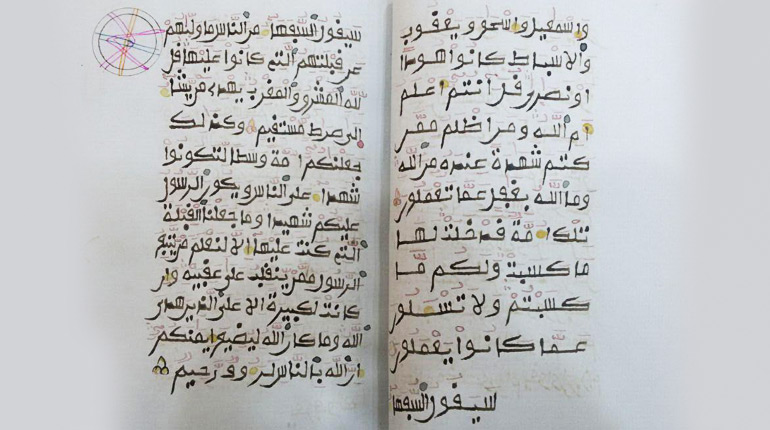 واسمعيل واسحق ويعقوب
والاسباط كانوا هودا
او نصرى قل انتم اعلم
ام الله ومن اظلم ممن
كتم شهدة عنده من الله
وما الله بغفل عما تعملون
تلك امة قد خلت لها
ما كسبت ولكم ما
كسبتم ولا تسلون
عما كانوا يعملون
سيقول السفها
سيقول السفها من الناس ما وليهم
عن قبلتهم التي كانوا عليها قل
لله المشرق والمغرب يهدى من يشا
الى صرط مستقيم وكذلك
جعلنكم امة وسطا لتكونوا
شهدا على الناس ويكون الرسول
عليكم شهيدا وما جعلنا القبلة
التي كنت عليها الا لنعلم من يتبع
الرسول ممن ينقلب على عقبيه وان
كانت لكبيرة الا على الذين هدى
الله وما كان الله ليضيع ايمنكم
ان الله بالناس لروف رحيم